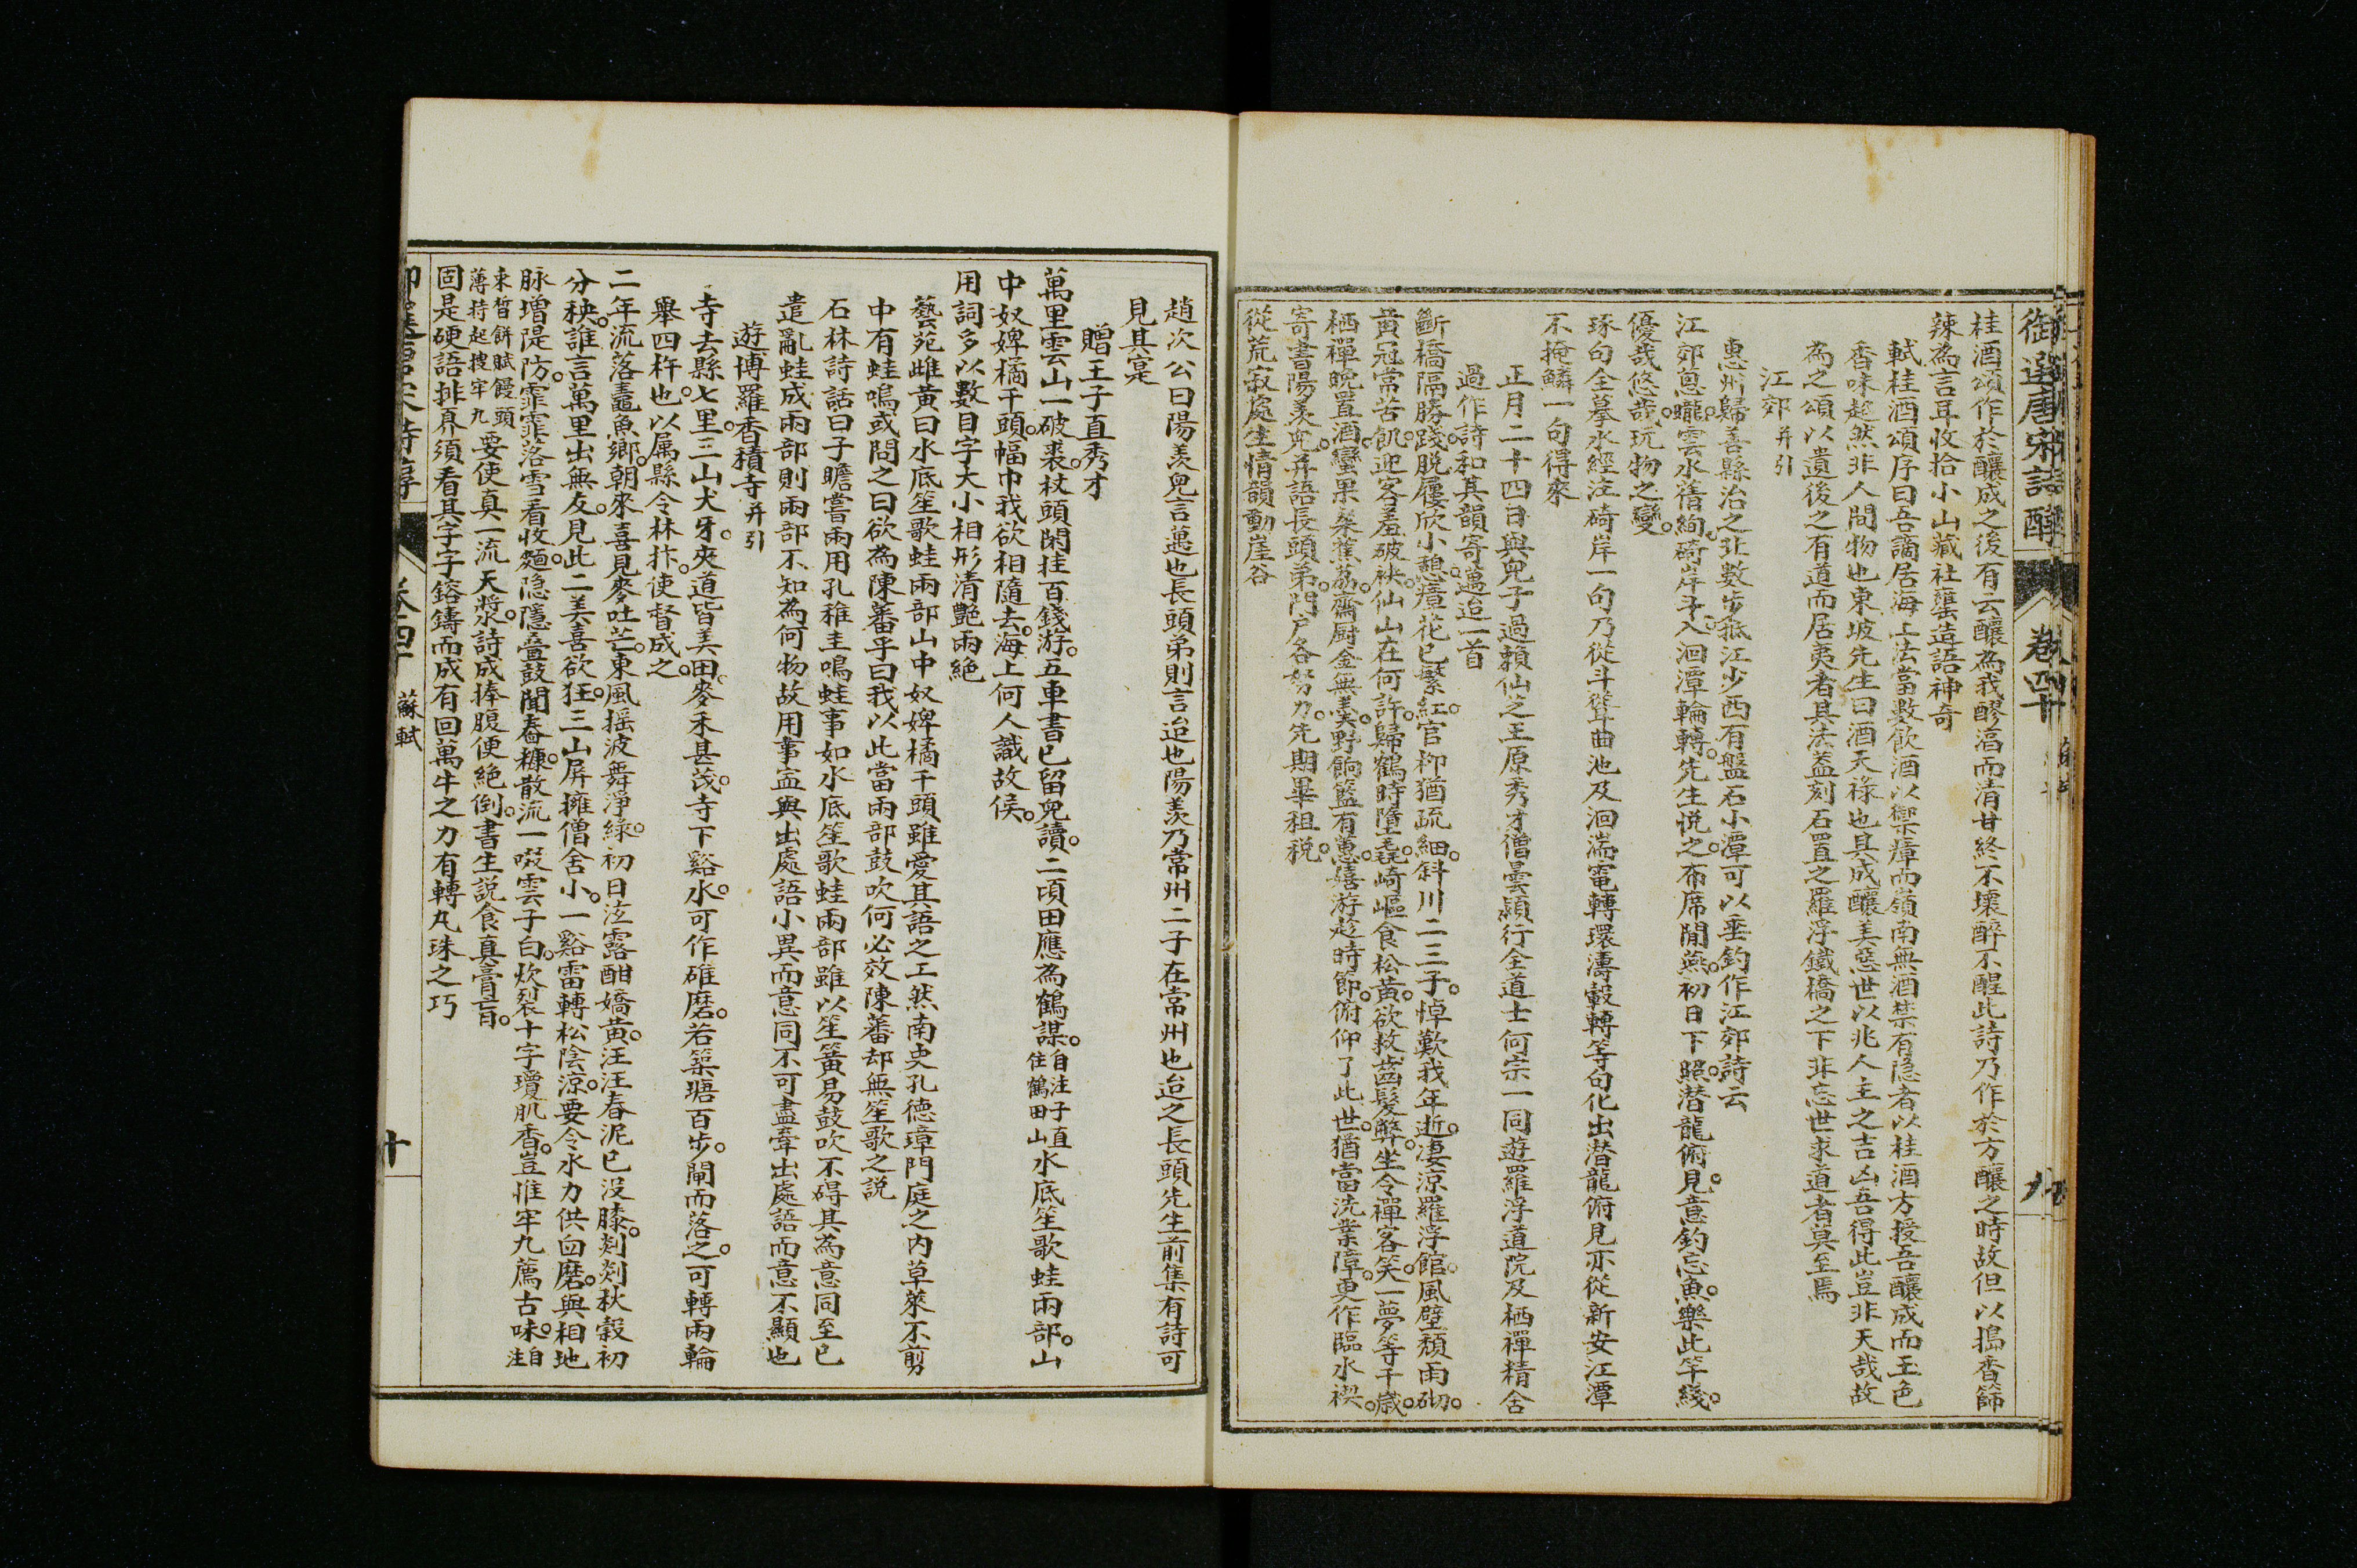 御選唐宋詩醇 卷四十
桂酒頌作於釀成之後有云釀為我醪滀而清甘終不壞醉不醒此詩乃作於方釀之時故但以搗香篩
辣為言耳收拾小山藏社甕造語神奇
軾桂酒頌序曰吾謫居海上法當數飲酒以禦瘴而嶺南無酒禁有隱者以桂酒方授吾釀成而玉色
香味超然非人間物也東坡先生曰酒天祿也其成釀美惡世以兆人主之吉凶吾得此豈非天哉故
為之頌以遺後之有道而居夷者其法蓋刻石置之羅浮鐵橋之下非忘世求道者莫至焉
江郊并引
惠州歸善縣治之北數步抵江少西有盤石小潭可以垂釣作江郊詩云
江郊蔥曨雲水舊絢碕岸斗入洄潭輪轉先生悅之布席閒燕初日下照潛龍俯見意釣忘魚樂此竿綫
優哉悠哉玩物之變
琢句全摹水經注碕岸一句乃從斗聳曲池及洄湍電轉環濤轂轉等句化出潛龍俯見亦從新安江潭
不掩鱗一句得來
正月二十四日與兒子過賴仙之王原秀才僧曇穎行全道士何宗一同遊羅浮道院及栖禪精舍
過作詩和其韻寄邁迨一首
斷橋隔勝踐脱屨欣小憩瘴花已繁紅官柳猶疏細斜川二三子悼歎我年逝凄涼羅浮館風壁頹雨砌
黃冠常苦飢迎客羞破袂仙山在何許歸鶴時墮毳崎嶇食松黃欲救齒髮弊坐令禪客笑一夢等千歲
栖禪晚置酒蠻果粲蕉荔齋厨釜無羹野餉籃有蕙嬉游趁時節俯仰了此世猶當洗業障更作臨水禊
寄書陽羡兒并語長頭弟門户各努力先期畢租税
從荒寂處生情韻動崖谷
趙次公曰陽羡兒言邁也長頭弟則言迨也陽羡乃常州二子在常州也迨之長頭先生前集有詩可
見其寔
贈王子直秀才
萬里雲山一破裘杖頭閑挂百錢游五車書已留兒讀二頃田應為鶴謀自注子直
住鶴田山水底笙歌蛙兩部山
中奴婢橘千頭幅巾我欲相隨去海上何人識故侯
用詞多以數目字大小相形清艷兩絶
藝苑雌黃曰水底笙歌蛙兩部山中奴婢橘千頭雖愛其語之工然南史孔德璋門庭之内草萊不剪
中有蛙鳴或問之曰欲為陳蕃乎曰我以此當兩部鼓吹何必效陳蕃却無笙歌之説
石林詩話曰子瞻嘗兩用孔稚圭鳴蛙事如水底笙歌蛙兩部雖以笙簧易鼓吹不碍其為意同至已
遣亂蛙成兩部則兩部不知為何物故用事寔與出處語小異而意同不可盡牽出處語而意不顯也
遊博羅香積寺并引
寺去縣七里三山犬牙夾道皆美田麥禾甚茂寺下谿水可作碓磨若築塘百步閘而落之可轉兩輪
舉四杵也以属縣令林抃使督成之
二年流落鼃魚鄉朝來喜見麥吐芒東風摇波舞淨綠初日泫露酣嬌黃汪汪春泥已没膝剡剡秋穀初
分秧誰言萬里出無友見此二美喜欲狂三山屏擁僧舍小一谿雷轉松陰涼要令水力供臼磨與相地
脉增隄防霏霏落雪看收麵隐隱疊鼓聞舂糠散流一啜雲子白炊裂十字瓊肌香豈惟牢九薦古味自注
束皙餅賦饅頭
薄持起搜牢九要使真一流天漿詩成捧腹便絶倒書生説食真膏肓
固是硬語排奡須看其字字鎔鑄而成有回萬牛之力有轉丸珠之巧
卷四十 蘇軾 十